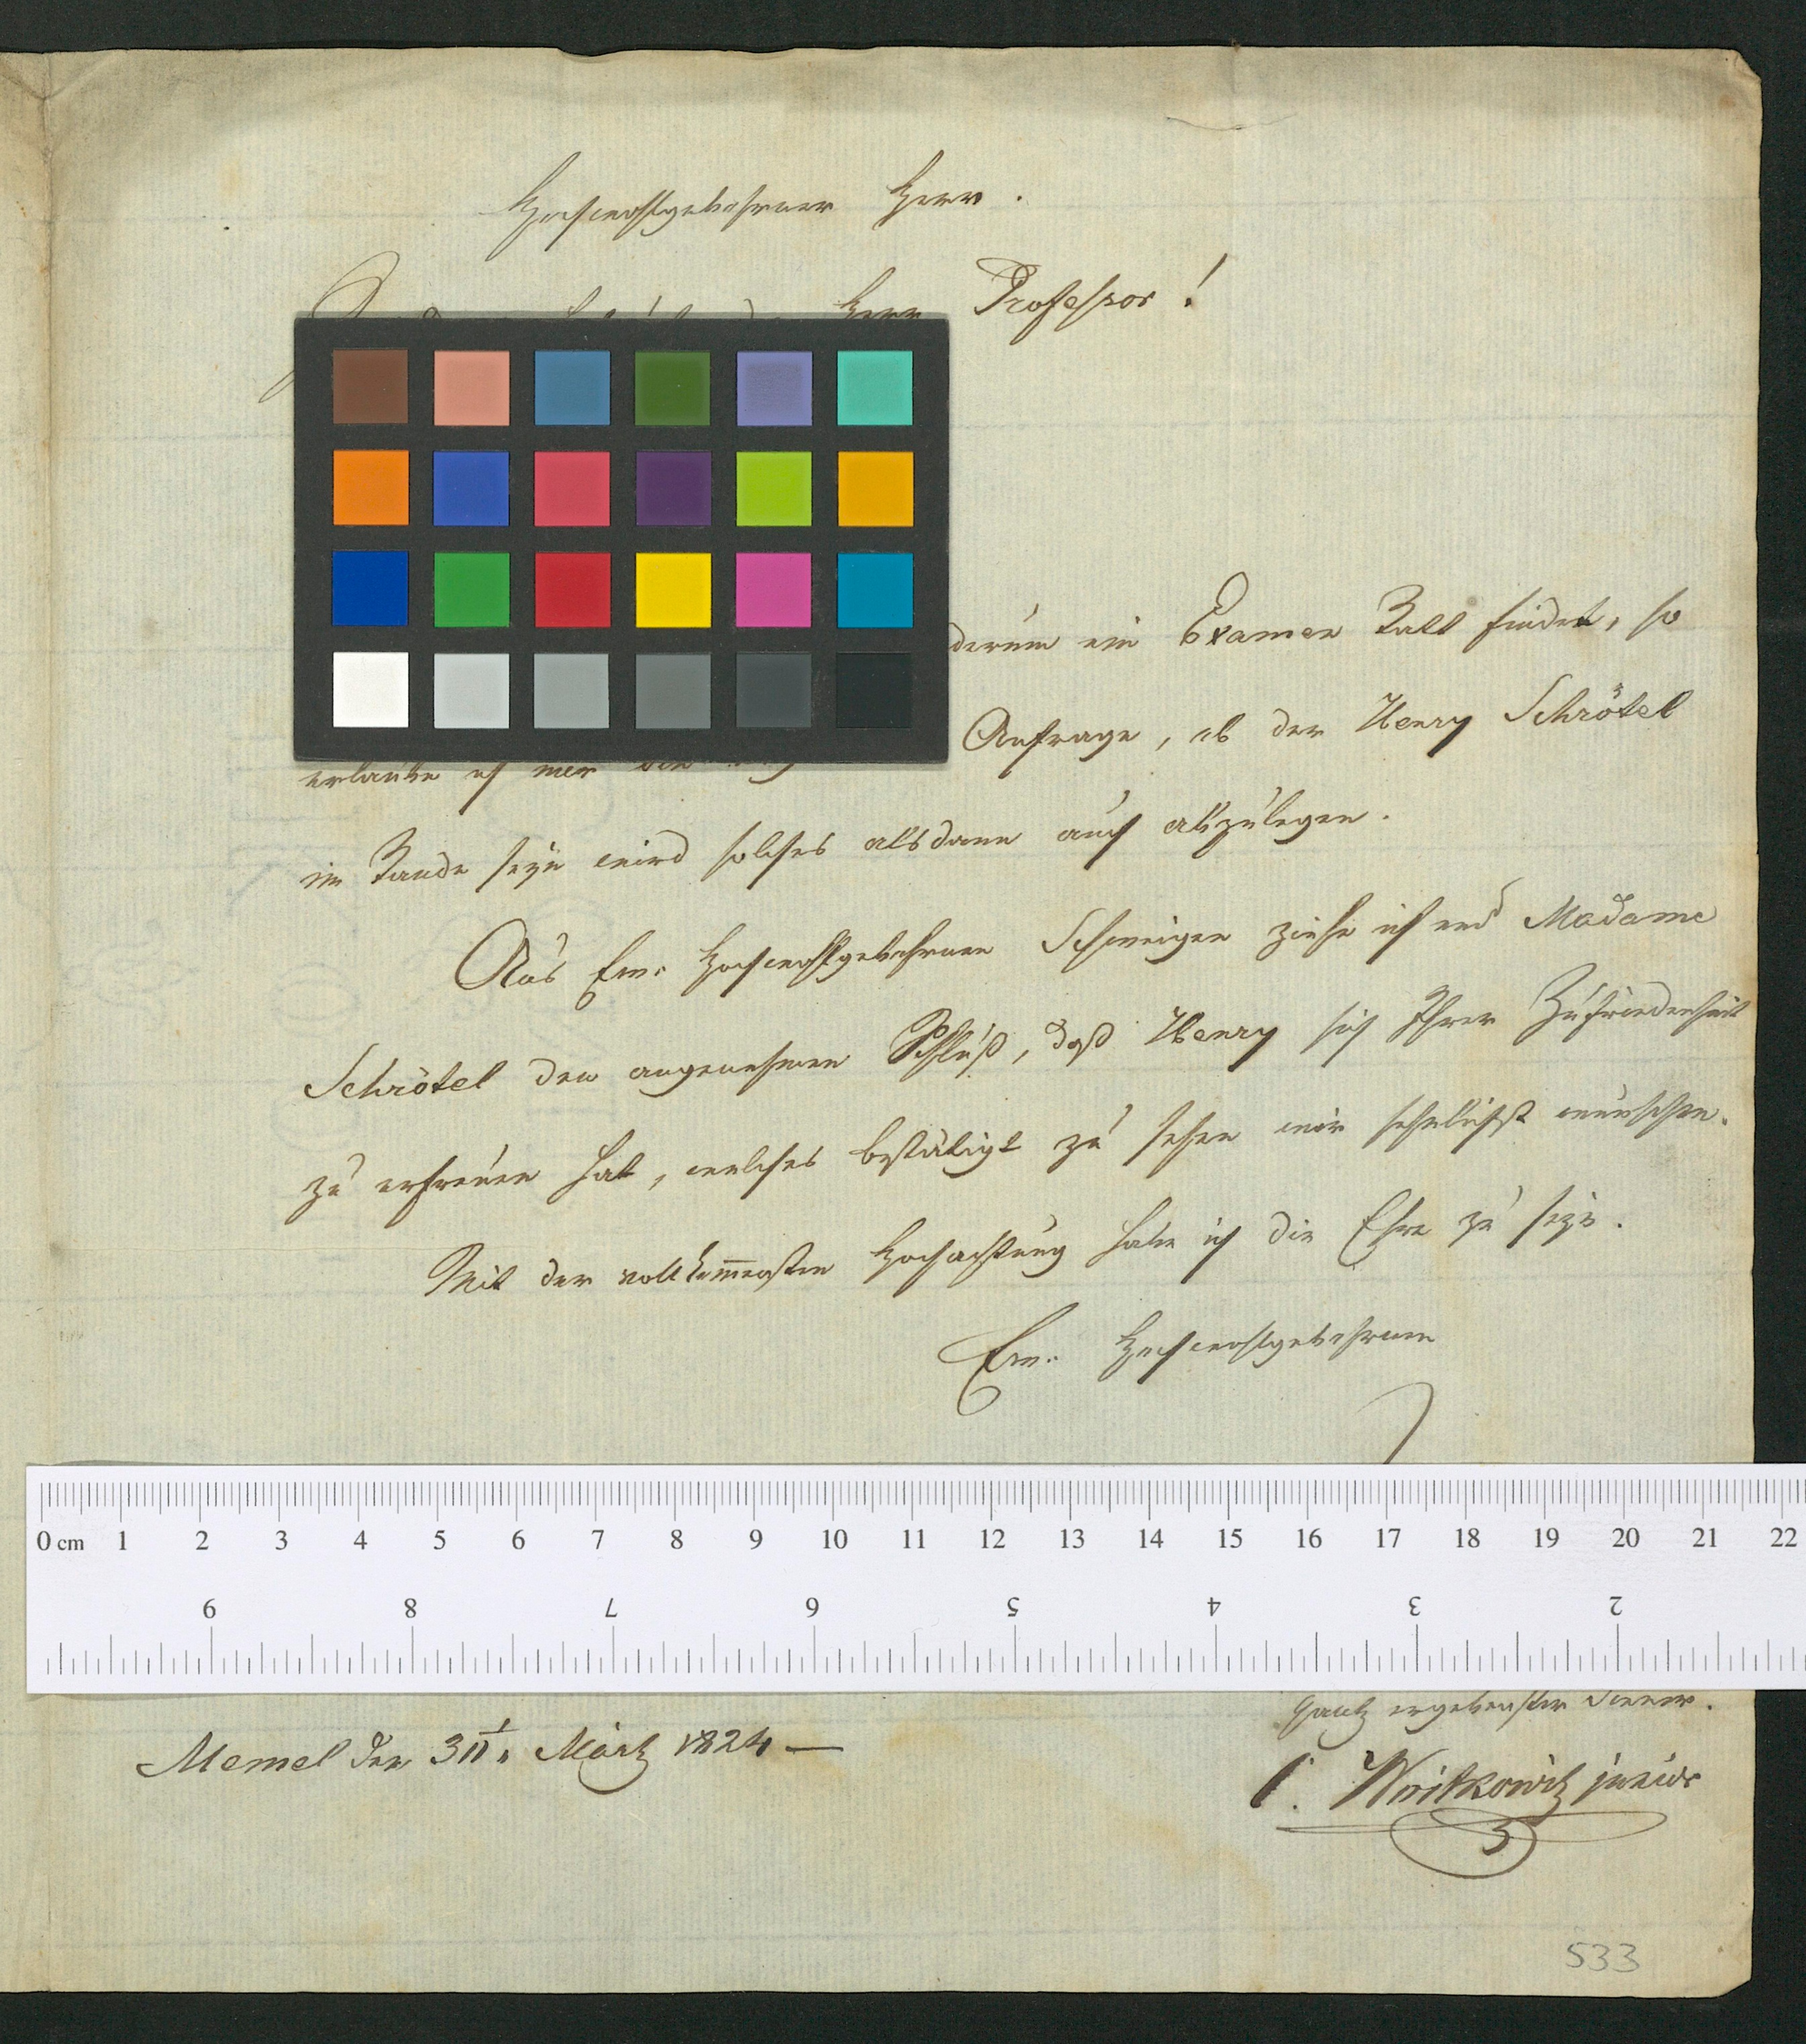 Hochwohlgebohrner Herr.
Herr Professor!
ein Examen Statt findet, so
Anfrage, ob der Henry Schrötel
erlaube ich mir
im Stande seyn wird solches alsdann auch abzulegen.
Aus Ew. Hochwohlgebohrnen Schweigen ziehe ich und Madame
Schrötel den angenehmen Schluß, daß Henry sich Ihrer Zufriedenheit
zu erfreuen hat, welches bestätigt zu sehen wir sehnlichst wünschen.
Mit der vollkom̅ensten Hochachtung habe ich die Ehre zu seyn.
Ew. Hochwohlgebohrnen
0 cm 1 2 3 4 5 6 7 8 9 10 11 12 13 14 15 16 17 18 19 20 21 22
9 8 7 6 5 4 3 2
gantz ergebenster Diener.
Memel den März 1824 —
Witkowitz junior
533